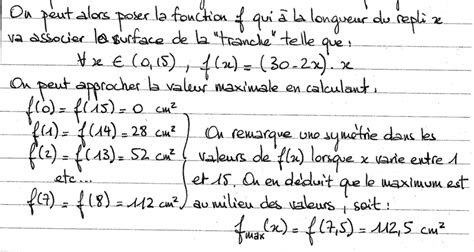 On peut alors poser la fonction f qui à la longueur du repli x
va associer la surface de la "tranche" telle que :
∀ x ∈ (0,15), f(x) = (30-2x).x
On peut approcher la valeur maximale en calculant.
f(0) = f(15) = 0 cm²
f(1) = f(14) = 28 cm²
f(2) = f(13) = 52 cm²
etc...
f(7) = f(8) = 112 cm²
On remarque une symétrie dans les
valeurs de f(x) lorsque x varie entre 1
et 15. On en déduit que le maximum est
au milieu des valeurs, soit :
f max (x) = f(7,5) = 112,5 cm²